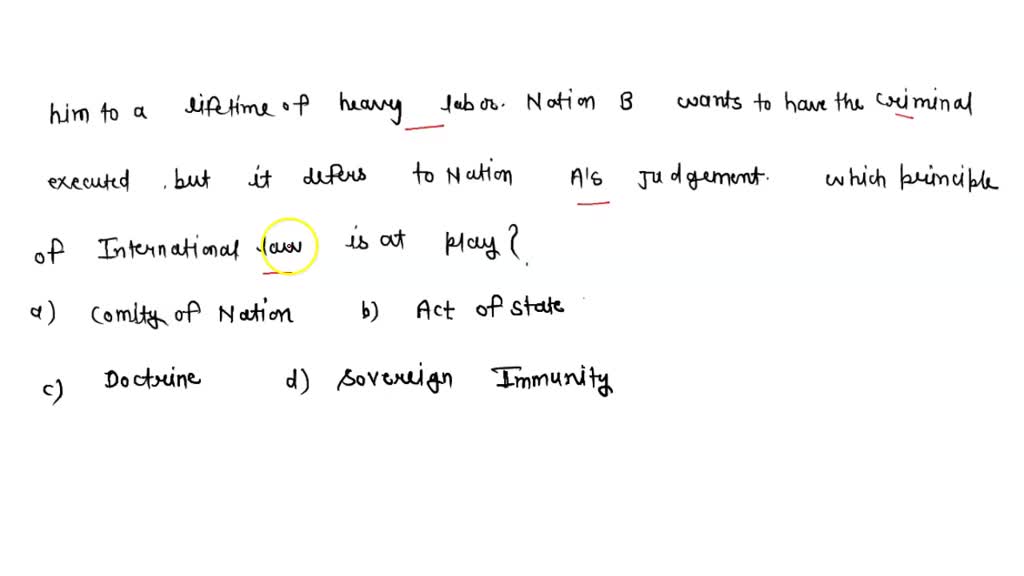 him to a lifetime of heavy labor. Nation B wants to have the criminal
executed, but it defers to Nation A's judgement. which principle
of International law is at play?
a) Comity of Nation b) Act of state
c) Doctrine d) Sovereign Immunity